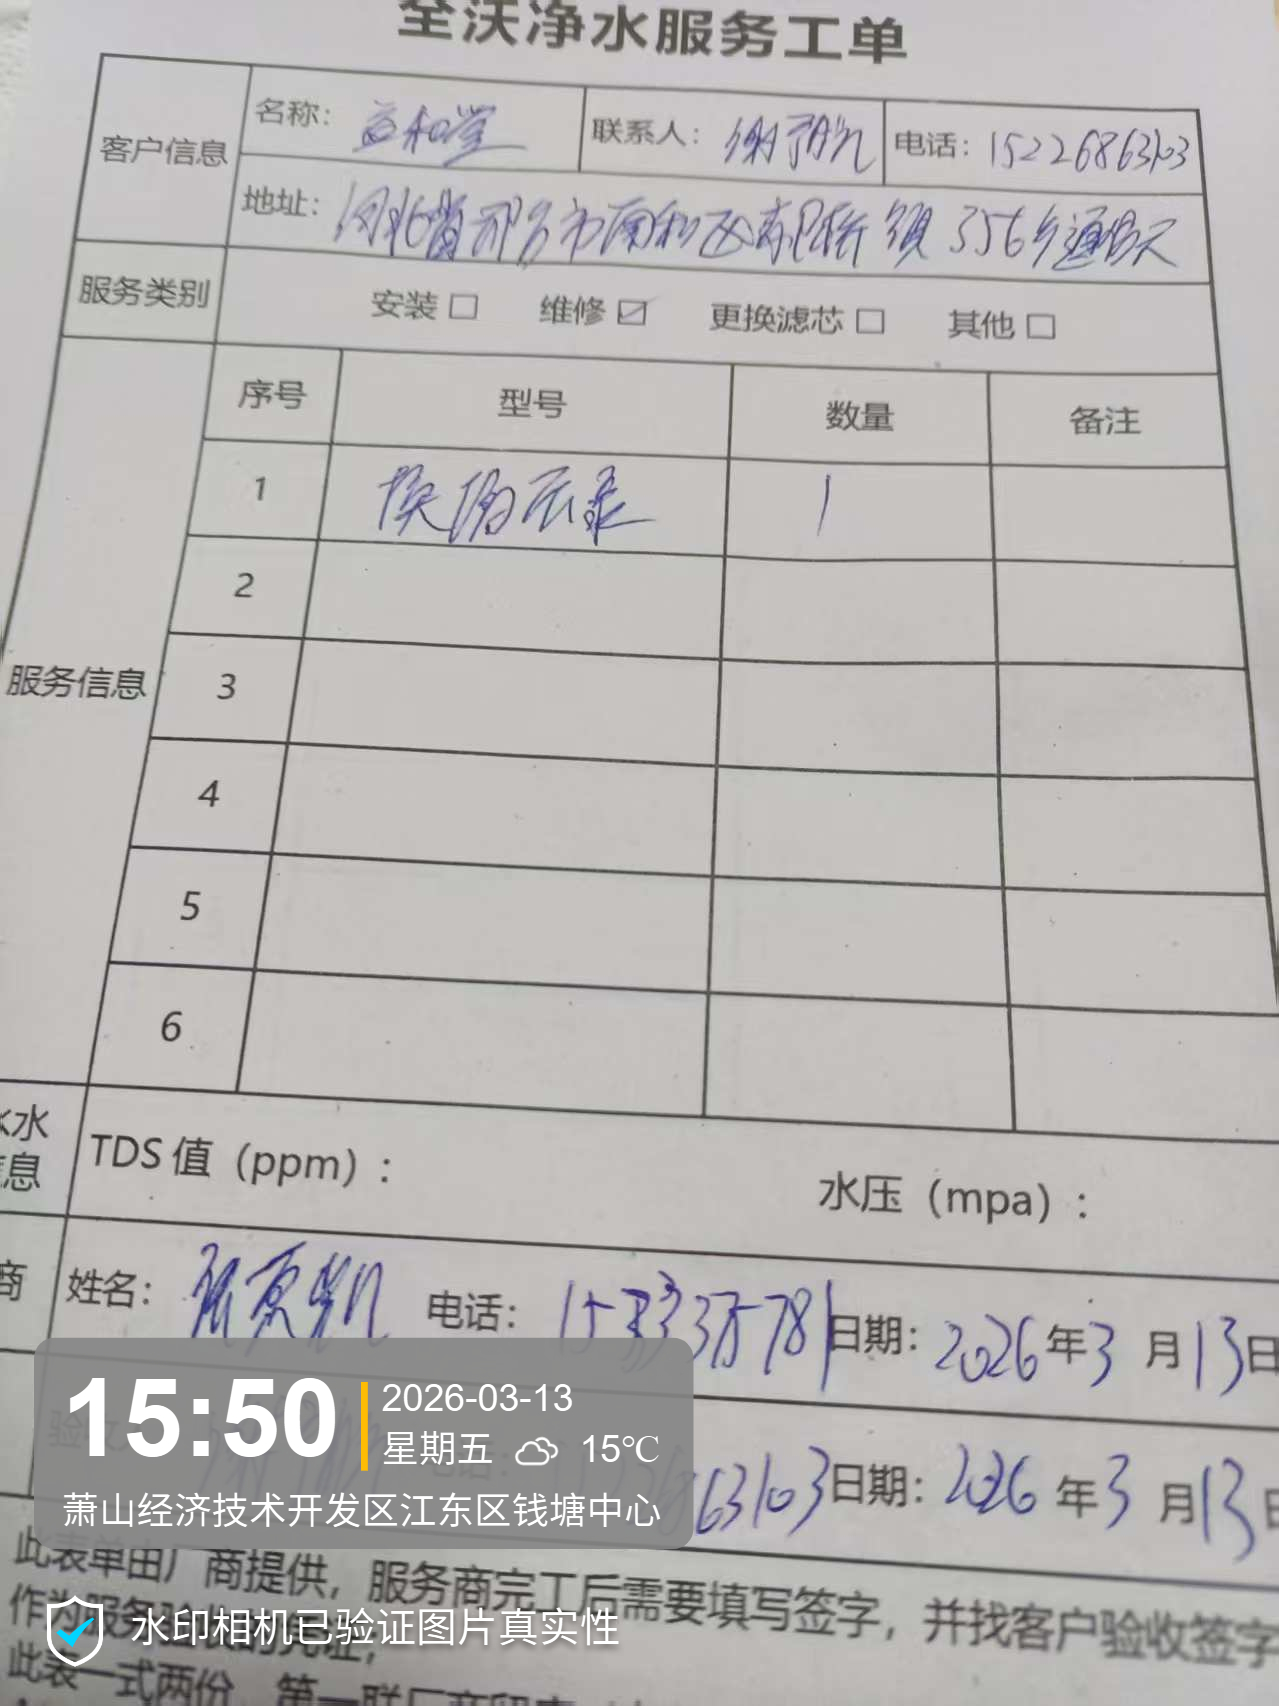 全沃净水服务工单
客户信息
名称: 益和堂 联系人: 谢 电话: 15226863103
地址: 河北省邢台市南和区 镇 356乡道
服务类别 安装□ 维修☑ 更换滤芯□ 其他□
服务信息
序号 型号 数量 备注
1 换 1
2
3
4
5
6
水
息
TDS 值（ppm）: 水压（mpa）:
商 姓名: 电话: 日期: 2026年3月13日
63103 日期: 2026年3月13日
15:50
2026-03-13
星期五 15℃
萧山经济技术开发区江东区钱塘中心
此表单由厂商提供，服务商完工后需要填写签字，并找客户验收签字
作为服务
水印相机已验证图片真实性
此表一式两份